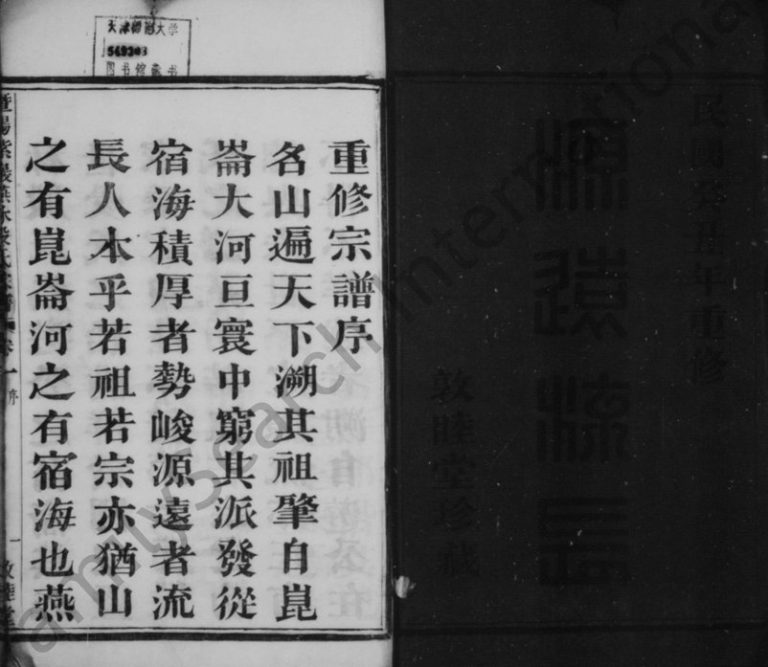 民國癸丑年重修
源遠流長
敦睦堂珍藏
天津師範大学
图书馆藏书
重修宗譜序
名山遍天下溯其祖肇自崑
崙大河亘寰中窮其派發從
宿海積厚者勢峻源遠者流
長人本乎若祖若宗亦猶山
之有崑崙河之有宿海也燕
卷一
序
一
敦睦堂
FamilySearch International